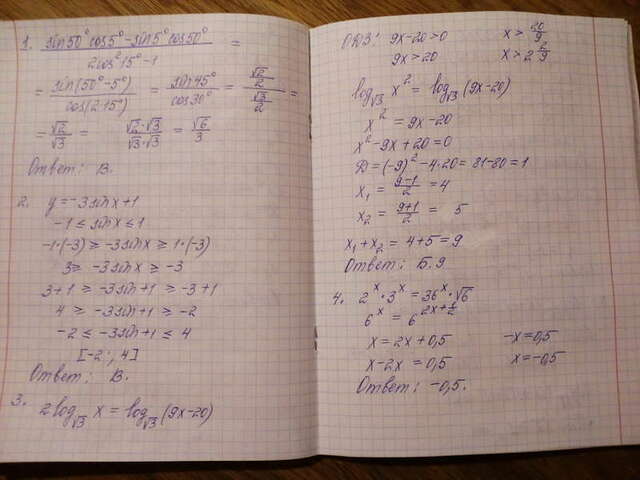 1. (sin50° cos5° - sin5° cos50°) / (2cos²15° - 1) =
= sin(50° - 5°) / cos(2·15°) = sin45° / cos30° = (√2/2) / (√3/2) =
= √2/√3 = (√2·√3)/(√3·√3) = √6/3
Ответ: В.
2. y = -3sinx + 1
-1 ≤ sinx ≤ 1
-1·(-3) ≥ -3sinx ≥ 1·(-3)
3 ≥ -3sinx ≥ -3
3+1 ≥ -3sin+1 ≥ -3+1
4 ≥ -3sin+1 ≥ -2
-2 ≤ -3sin+1 ≤ 4
[-2; 4]
Ответ: В.
3. 2log_√3 x = log_√3 (9x-20)
ОДЗ: 9x-20>0 x > 20/9
9x>20 x > 2 2/9
log_√3 x² = log_√3 (9x-20)
x² = 9x-20
x² - 9x + 20 = 0
D = (-9)² - 4·20 = 81-80 = 1
x₁ = (9-1)/2 = 4
x₂ = (9+1)/2 = 5
x₁+x₂ = 4+5 = 9
Ответ: Б. 9
4. 2^x · 3^x = 36^x · √6
6^x = 6^(2x+1/2)
x = 2x+0,5 -x=0,5
x-2x = 0,5 x=-0,5
Ответ: -0,5.